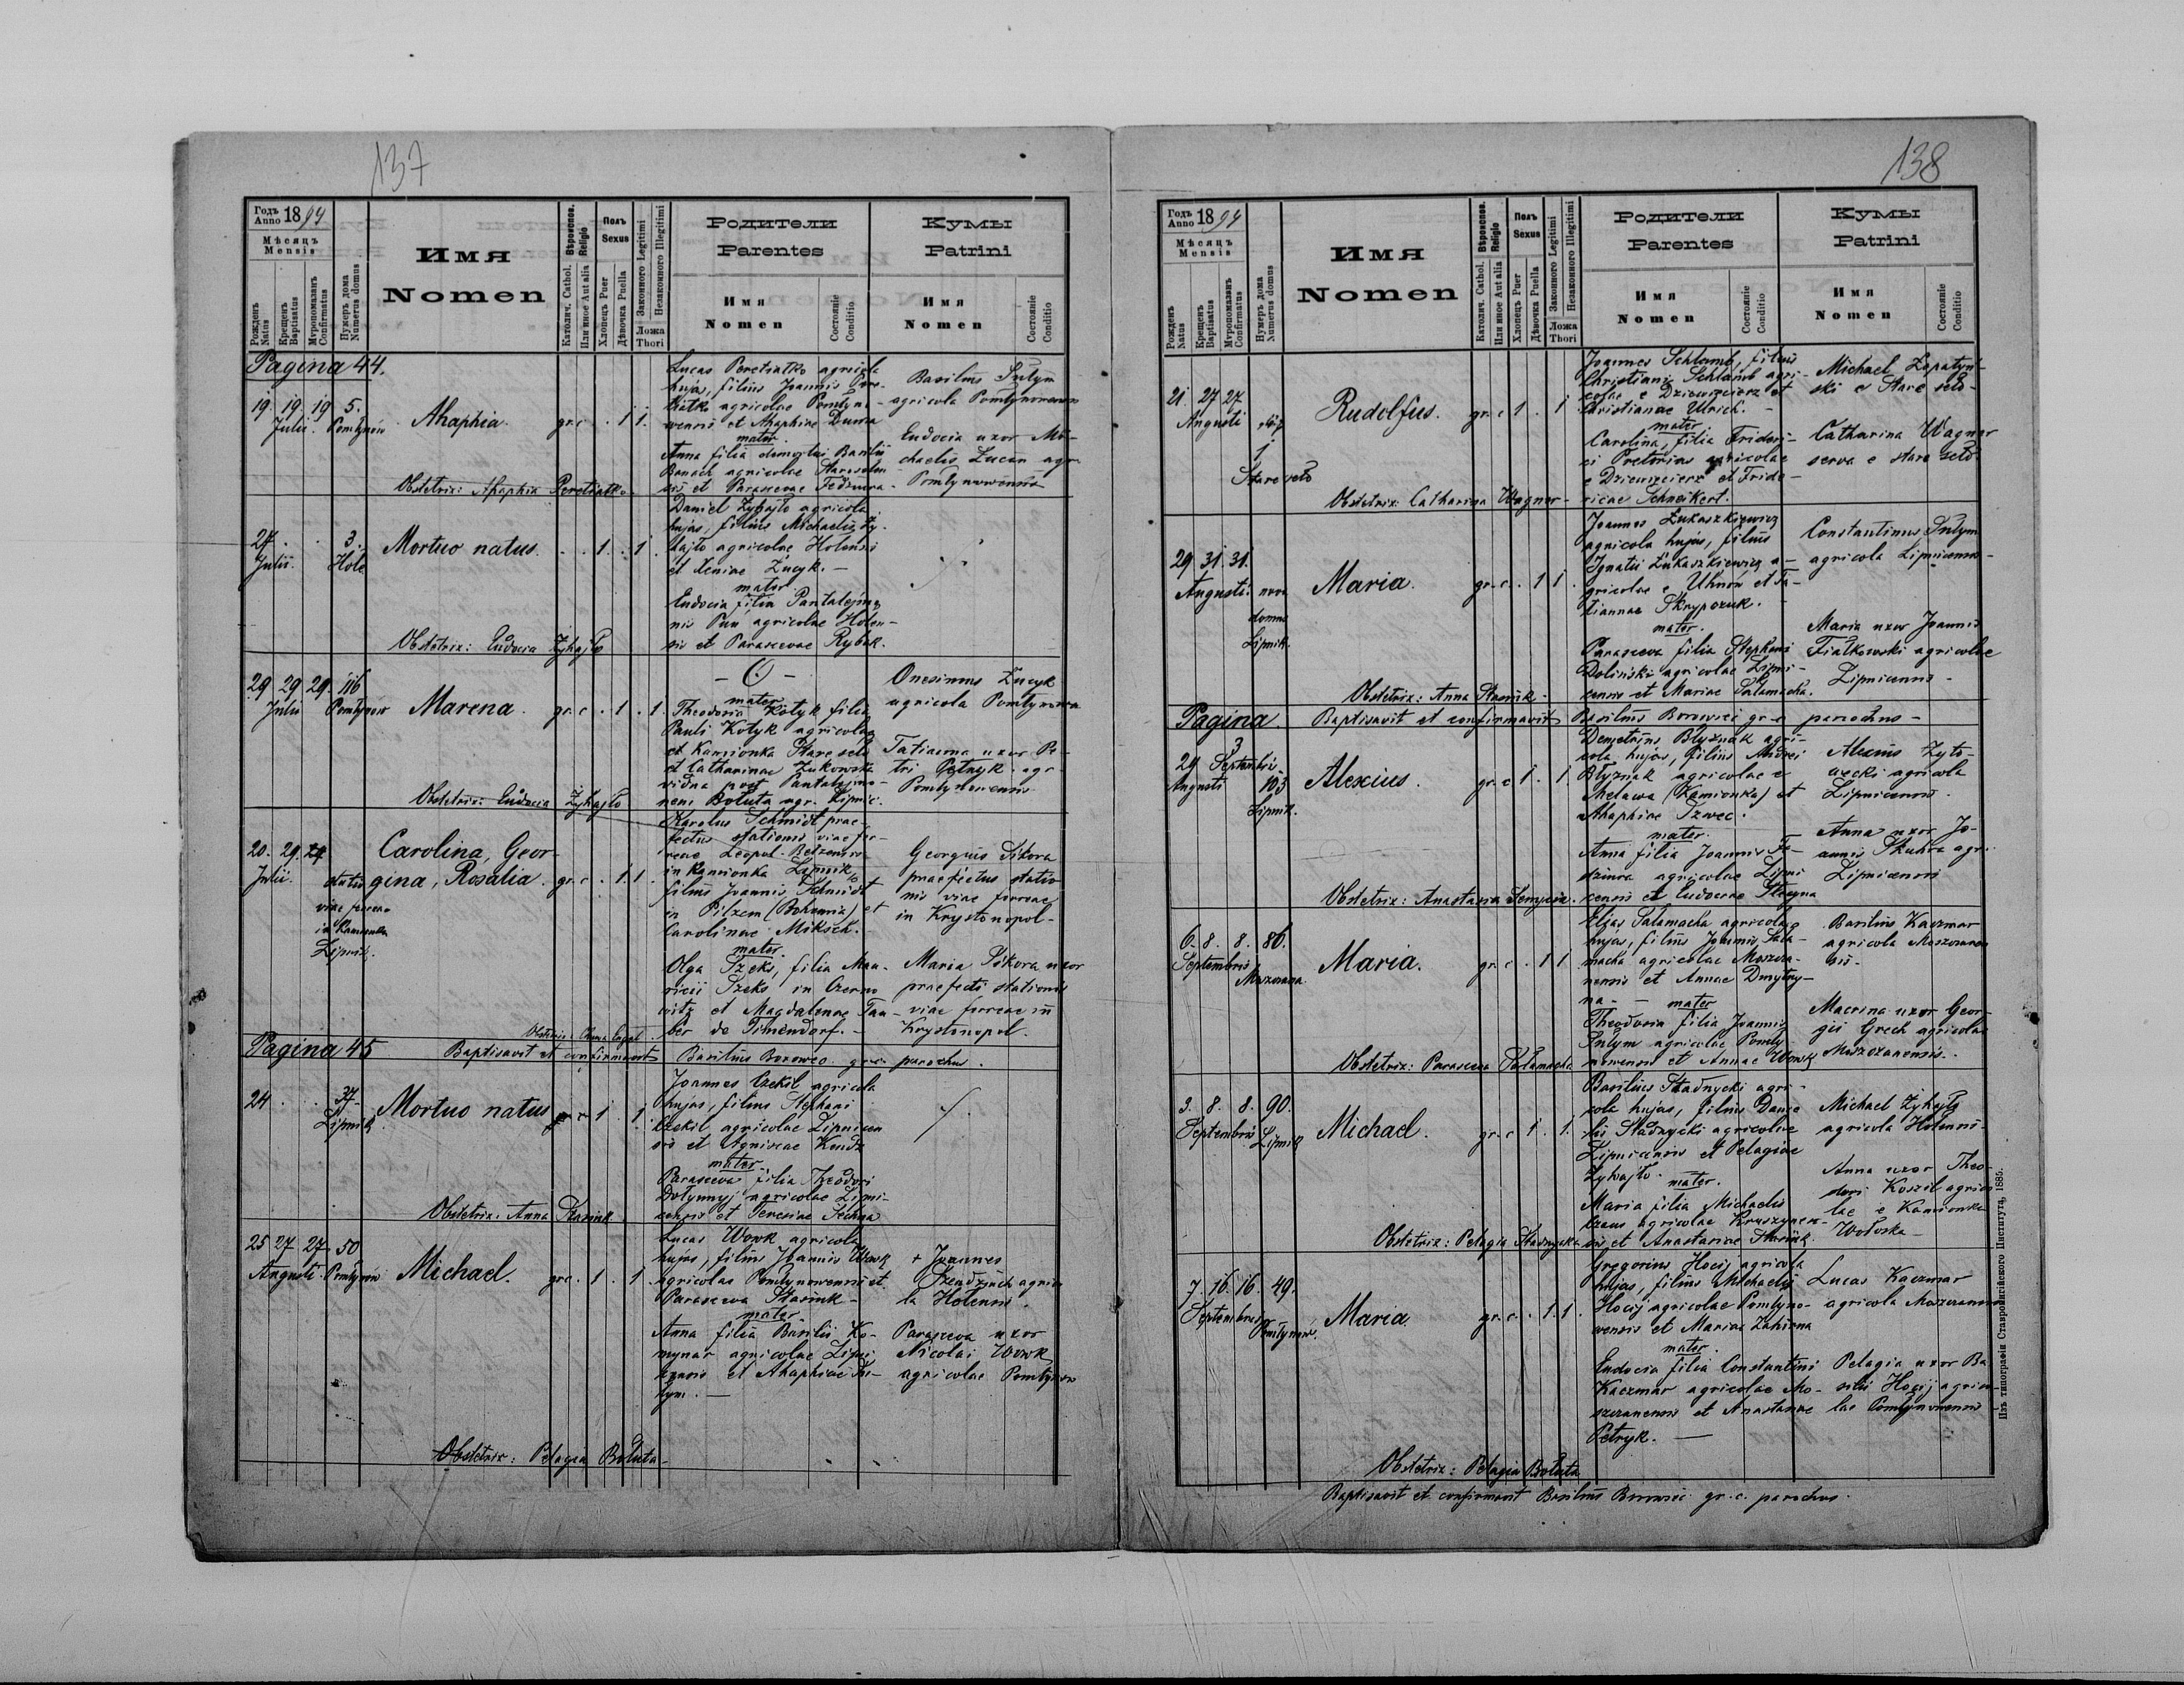 137
Годъ Anno 1894
Мѣсяцъ Mensis
Рожденъ Natus
Крещенъ Baptisatus
Муропомазанъ Confirmatus
Нумеръ дома Numerus domus
Имя
Nomen
Вѣроиспов. Religio
Католич. Cathol.
Или иное Aut alia
Полъ Sexus
Хлопецъ Puer
Дѣвочка Puella
Законного Legitimi
Незаконного Illegitimi
Ложа Thori
Родители
Parentes
Имя
Nomen
Состояніе
Conditio
Кумы
Patrini
Имя
Nomen
Состояніе
Conditio
Pagina 44.
19. 19 19 5.
Julii. Pomłynów
Ahaphia. gr. c . 1 1.
Lucas Peretiatko agricola
hujas, filius Joannis Pere-
tiatko agricolae Pomłyno-
wensis et Ahaphiae Duma
mater.
Anna filia demortui Basilii
Banach agricolae Staroselen-
sis et Parascevae Fedziura
Basilius Sułym
agricola Pomłynowensis
Eudocia uxor Mi-
chaelis Zucin agr.
Pomłynowensis
Obstetrix: Ahaphia Peretiatko.
27. . . 3.
Julii. Hole
Mortuo natus. . . 1. . 1
Daniel Zyhajło agricola
hujas, filius Michaelis Zy-
hajło agricolae Holensi
et Xeniae Zucyk. -
mater
Eudocia filia Pantalejmo-
nis Pun agricolae Holen-
sis et Parascevae Rybak.
Obstetrix: Eudocia Zyhajło
29 29 29. 116
Julii Pomłynów
Marena. gr. c . 1 . 1.
mater
Theodosia Kotyk filia
Pauli Kotyk agricolae
ex Kamionka Stare sełó
et Catharinae Zukowska
vidua post Pantalejmo-
nem Bołuta agr. Lipnic.
Onesimus Zucyk
agricola Pomłynowen
Tatianna uxor Pe-
tri Petryk agr.
Pomłynowensis
Obstetrix: Eudocia Zyhajło
20. 29. 29
Julii. statio
viae ferreae
in Kamionka
Lipnik.
Carolina, Geor-
gina, Rosalia. gr. c . 1. 1.
Karolus Schmidt prae-
fectus stationis viae fer-
reae Leopol-Betzensis
in Kamionka Lipnik,
filius Joannis Schmidt
in Pilzen (Bohemia) et
Carolinae Miksch.
mater.
Olga Szeks, filia Mau-
ricii Szeks in Czerno
witz et Magdalenae Tau-
ber de Timendorf. -
Georgius Sikora
praefectus statio
nis viae ferreae
in Krystonopol-
Maria Sikora uxor
praefecti stationis
viae ferreae in
Krystonopol.
Obstetrix: Anna Engel.
Pagina 45
Baptisavit et confirmavit Basilius Borowec gr. c. parochus.
24 . . 37.
Lipnik
Mortuo natus gr. c 1 . 1
Joannes Czekil agricola
hujas, filius Stephani
Czekil agricolae Lipnicen
sis et Agnisiae Kendz
mater
Parasceva filia Theodori
Dołynnyj agricolae Lipni-
censis et Teresiae Sechna
Obstetrix: Anna Stasiuk
25 27 27 50
Augusti. Pomłynów
Michael. gr c . 1 . 1
Lucas Wowk agricola
hujas, filius Joannis Wowk
agricolae Pomłynowensis et
Parasceva Stasiuk -
mater
Anna filia Basilii Ko-
mynar agricolae Lipni
censis et Ahaphiae Su-
łym. -
+ Joannes
Szendziuch agrico
la Holensis.
Parasceva uxor
Nicolai Wowk
agricolae Pomłynow
Obstetrix: Pelagia Bołuta-
138
Годъ Anno 1894
Мѣсяцъ Mensis
Рожденъ Natus
Крещенъ Baptisatus
Муропомазанъ Confirmatus
Нумеръ дома Numerus domus
Имя
Nomen
Вѣроиспов. Religio
Католич. Cathol.
Или иное Aut alia
Полъ Sexus
Хлопецъ Puer
Дѣвочка Puella
Законного Legitimi
Незаконного Illegitimi
Ложа Thori
Родители
Parentes
Имя
Nomen
Состояніе
Conditio
Кумы
Patrini
Имя
Nomen
Состояніе
Conditio
21. 27 27
Augusti
1
Stare sełó
Rudolfus. gr. c 1 . 1
Joannes Schlamb, filius
Christiani Schlamb agri-
colae e Dziewięcierz et
Christianae Ulrich. -
mater
Carolina, filia Frideri-
ci Pretorius agricolae
e Dziewięcierz et Fride-
ricae Schneikert.
Michael Zapatyń-
ski e Stare seło-
Catharina Wagner
serva e stare seło.
Obstetrix: Catharina Wagner-
29 31. 31.
Augusti. nova
domus
Lipnik.
Maria. gr. c . 1 1.
Joannes Łukaszkiewicz
agricola hujas, filius
Ignatii Łukaszkiewicz a-
gricolae e Uhnów et Ta-
tiannae Skrypczuk.
mater.
Parasceva filia Stephani
Doliński agricolae Lipni-
censis et Mariae Sałamacha.
Constantinus Sułym
agricola Lipnicensis-
Maria uxor Joannis
Fiałkowski agricolae
Lipnicensis-
Obstetrix: Anna Stasiuk-
Pagina. Baptisavit et confirmavit Basilius Borowec gr-c parochus-
3
29 Septembris
Augusti 103
Lipnik.
Alexius. gr. c 1. 1.
Demetrius Błyzniak agri-
cola hujas, filius Andrei
Błyzniak agricolae e
Meława (Kamionka) et
Ahaphiae Szwec.
mater.
Anna filia Joannis Fe-
dziura agricolae Lipni
censis et Eudociae Steryna
Alexius Zyto-
wecki agricola
Lipnicensis.
Anna uxor Jo-
annis Skuhra agri.
Lipnicensis
Obstetrix: Anastasia Semycia.
6. 8. 8. 86.
Septembris Moszczana
Maria. gr. c . 1 1
Elias Sałamacha agricola
hujas, filius Joannis Sała-
macha agricolae Moszcza-
nensis et Annae Dmytry-
na- - mater
Theodosia filia Joannis
Sułym agricolae Pomły-
nowensis et Annae Wowk
Basilius Kaczmar
agricola Moszczanen
sis-
Macrina uxor Geor-
gii Grech agricolae
Moszczanensis.
Obstetrix: Parasceva Sałamacha
3. 8. 8. 90.
Septembris Lipnik
Michael. gr. c 1. 1.
Basilius Stadnycki agri-
cola hujas, filius Danie
lis Stadnycki agricolae
Lipnicensis et Pelagiae
Zyhajło. mater.
Maria filia Michaelis
Czaus agricolae Kruszynen-
sis et Anastasiae Stasiuk
Michael Zyhajło
agricola Holensis-
Anna uxor Theo-
dori Koszil agrico
lae e Kamionka
Wołoska-
Obstetrix: Pelagia Stadnycka
7. 16. 16. 49.
Septembris Pomłynów.
Maria. gr. c. . 1. 1.
Gregorius Hocij agricola
hujas, filius Michaelis
Hocij agricolae Pomłyno-
wensis et Mariae Zahirna
mater.
Eudocia filia Constantini
Kaczmar agricolae Mo-
szczanensis et Anastasiae
Petryk. -
Lucas Kaczmar
agricola Moszczanensis
Pelagia uxor Ba
silii Hocij agrico-
lae Pomłynowensis
Obstetrix: Pelagia Bołuta
Baptisavit et confirmavit Basilius Borowec gr. c. parochus.
Изъ типографіи Ставропигійского Института, 1885.